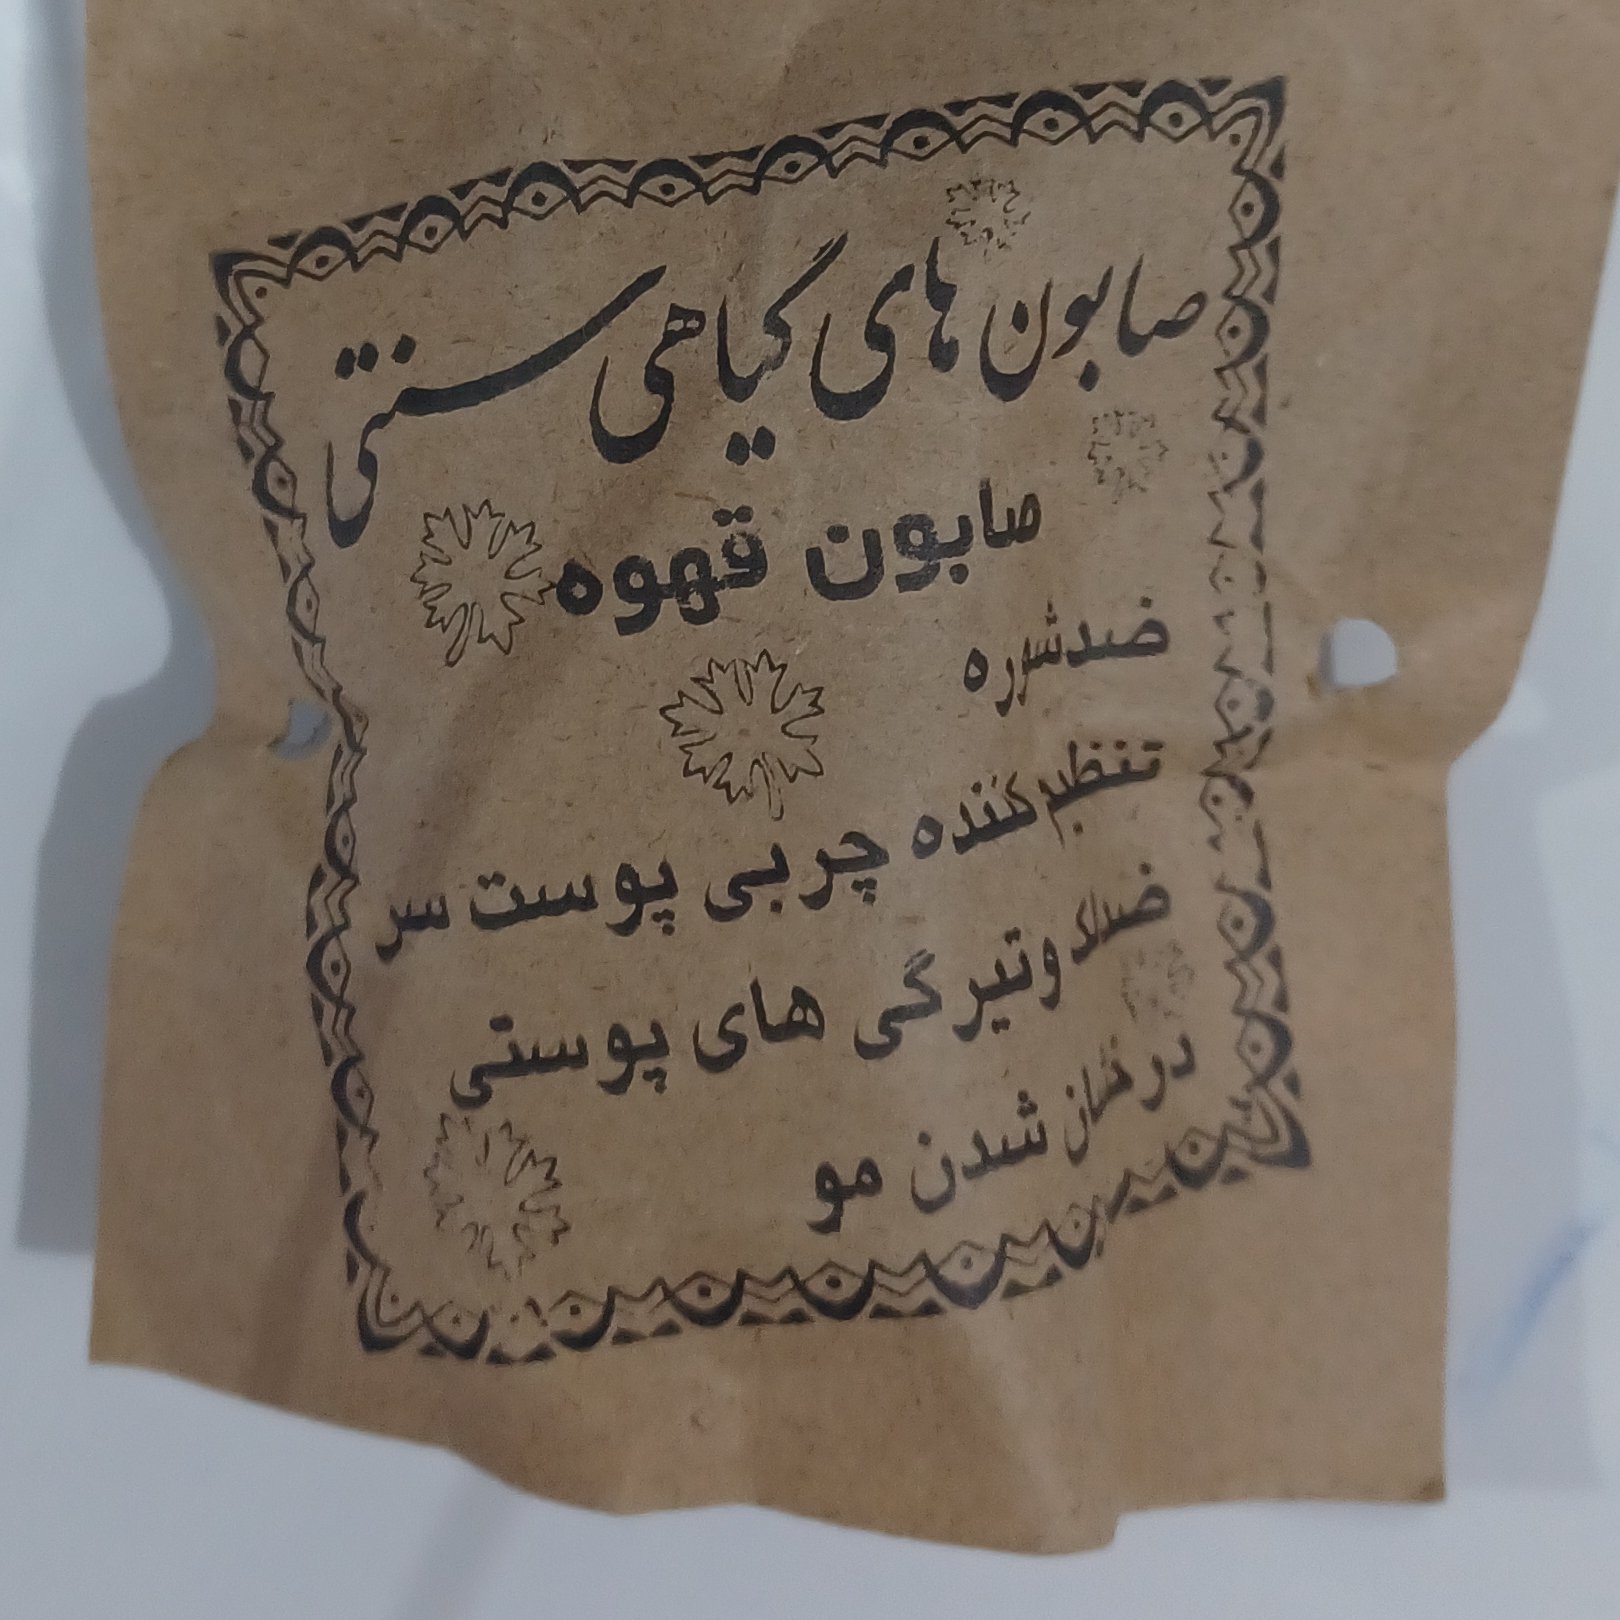 صابون های گیاهی سنتی
صابون قهوه
ضد شوره
تنظیم کننده چربی پوست سر
ضد لک و تیرگی های پوستی
درخشان شدن مو